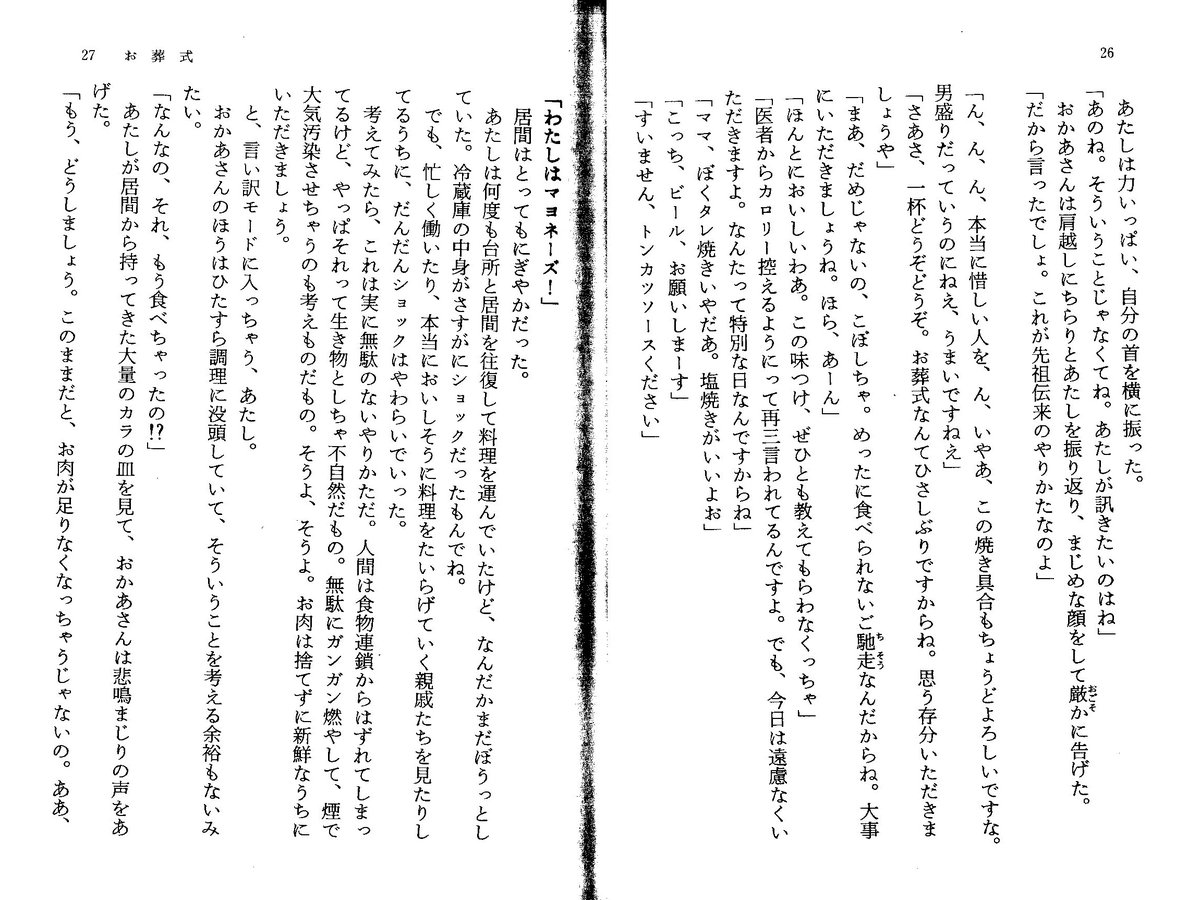 26
あたしは力いっぱい、自分の首を横に振った。
「あのね。そういうことじゃなくてね。あたしが訊きたいのはね」
おかあさんは肩越しにちらりとあたしを振り返り、まじめな顔をして厳かに告げた。
「だから言ったでしょ。これが先祖伝来のやりかたなのよ」
「ん、ん、ん、本当に惜しい人を、ん、ん、いやあ、この焼き具合もちょうどよろしいですな。
男盛りだっていうのにねえ、うまいですねえ」
「さあさ、一杯どうぞどうぞ。お葬式なんてひさしぶりですからね。思う存分いただきま
しょうや」
「まあ、だめじゃないの、こぼしちゃ。めったに食べられないご馳走なんだからね。大事
にいただきましょうね。ほら、あーん」
「ほんとにおいしいわあ。この味つけ、ぜひとも教えてもらわなくっちゃ」
「医者からカロリー控えるようにって再三言われてるんですよ。でも、今日は遠慮なくい
ただきますよ。なんたって特別な日なんですからね」
「ママ、ぼくタレ焼きいやだあ。塩焼きがいいよお」
「こっち、ビール、お願いしまーす」
「すいません、トンカツソースください」
27 お葬式
「わたしはマヨネーズ！」
居間はとってもにぎやかだった。
あたしは何度も台所と居間を往復して料理を運んでいたけど、なんだかまだぼうっとし
ていた。冷蔵庫の中身がさすがにショックだったもんでね。
でも、忙しく働いたり、本当においしそうに料理をたいらげていく親戚たちを見たりし
てるうちに、だんだんショックはやわらいでいった。
考えてみたら、これは実に無駄のないやりかただ。人間は食物連鎖からはずれてしまっ
てるけど、やっぱそれって生き物としちゃ不自然だもの。無駄にガンガン燃やして、煙で
大気汚染させちゃうのも考えものだもの。そうよ、そうよ。お肉は捨てずに新鮮なうちに
いただきましょう。
と、言い訳モードに入っちゃう、あたし。
おかあさんのほうはひたすら調理に没頭していて、そういうことを考える余裕もないみ
たい。
「なんなの、それ、もう食べちゃったの!?」
あたしが居間から持ってきた大量のカラの皿を見て、おかあさんは悲鳴まじりの声をあ
げた。
「もう、どうしましょう。このままだと、お肉が足りなくなっちゃうじゃないの。ああ、